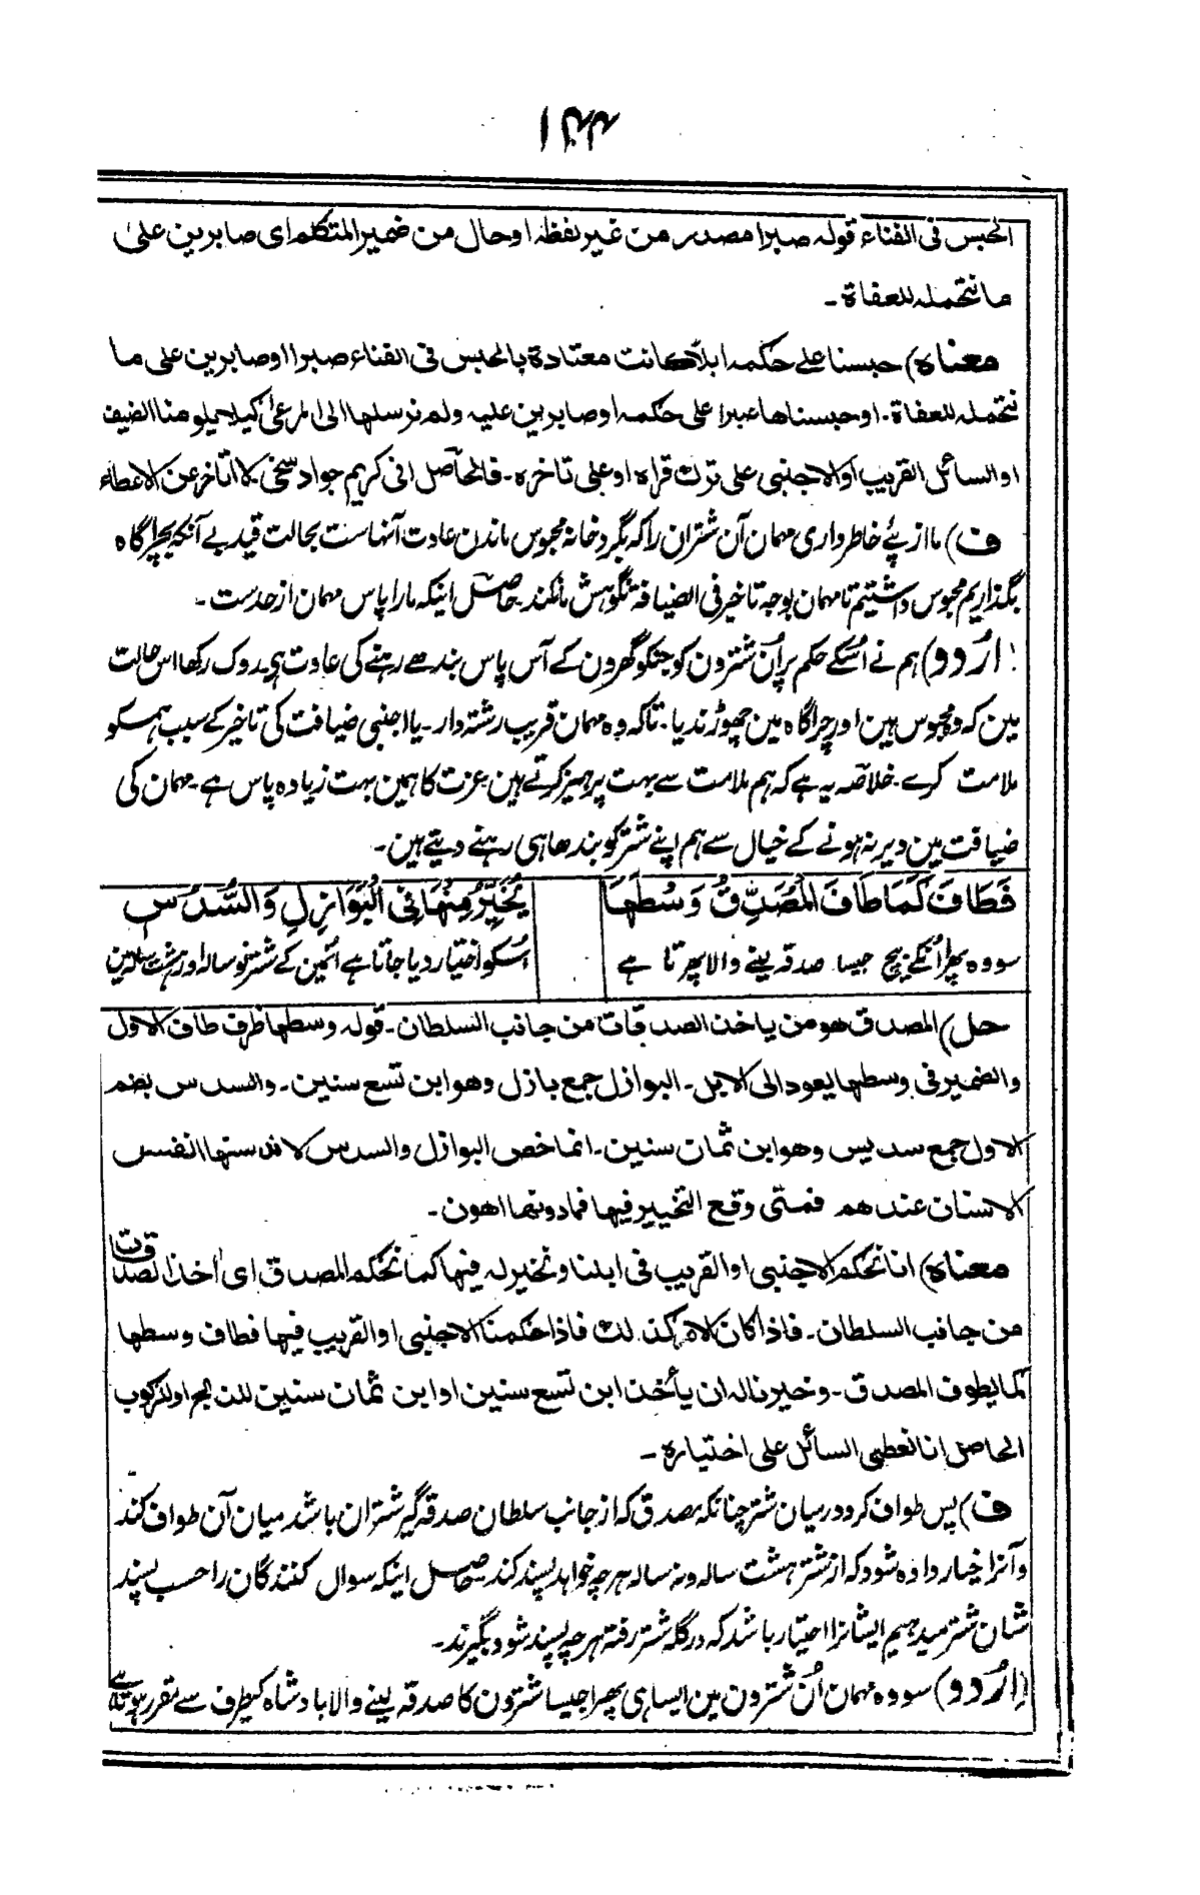 الحبس فی الفناء قوله صبرا مصدر من غیر لفظہ او حال من ضمیر المتکلم ای صابرین علیٰ
ما نتحمله للعفاة۔
معناہ) حبسنا علی حکمه ابلا کانت معتادة بالحبس فی الفناء صبرا او صابرین علی ما
نتحمله للعفاة۔ او حبسناها صبرا علی حکمه او صابرین علیه ولم نرسلها الی المرعیٰ کیلا یلومنا الضیف
او السائل القریب او الاجنبی علی ترك قراه او علی تاخره۔ فالحاصل انی کریم جواد سخی لا اتاخر عن الاعطاء
ف) ما از پئے خاطرداری مہمان آن شتران را کہ بگرد خانہ محبوس ماندن عادت آنہاست بحالت قید بے آنکہ بچراگاہ
بگذاریم محبوس داشتیم تا مہمان بوجہ تاخیر فی الضیافۃ نگوہش ما نکند حاصل اینکہ ما را پاس مہمان از حدست۔
(اُردو) ہم نے اُسکے حکم پر اُن شترون کو جنکو گھرون کے آس پاس بندھے رہنے کی عادت ہی روک رکھا اس حالت
مین کہ وہ محبوس ہین اور چراگاہ مین چھوڑ ندیا۔ تاکہ وہ مہمان قریب رشتہ دار۔ یا اجنبی ضیافت کی تاخیر کے سبب ہمسکو
ملامت کرے۔ خلاصہ یہ ہے کہ ہم ملامت سے بہت پرہیز کرتے ہین عزت کا ہمین بہت زیادہ پاس ہے۔ مہمان کی
ضیافت مین دیر نہ ہونے کے خیال سے ہم اپنے شتر کو بندھا ہی رہنے دیتے ہین۔
فَطَافَ کَمَا طَافَ الْمُصَدِّقُ وَسْطَهَا یُخَیَّرُ مِنْهَا فِی الْبَوَازِلِ وَالسُّدْسِ
سو وہ پھرا اُنکے بیچ جیسا صدقہ لینے والا پھرتا ہے اُسکو اختیار دیا جاتا ہے اُنمین کے شتر نو سالہ اور ہشت سالہ مین
حل) المصدق هو من یاخذ الصدقات من جانب السلطان۔ قوله وسطها ظرف طاف الاول
والضمیر فی وسطها یعود الی الابل۔ البوازل جمع بازل وهو ابن تسع سنین۔ والسدس بضم
الاول جمع سدیس وهو ابن ثمان سنین۔ انما خص البوازل والسدس لاند ستها انفس
الاسنان عندهم فمتی وقع التخییر فیها فما دونها اهون۔
معناہ) انا نحکم الاجنبی او القریب فی ابلنا ونخیر له فیها کما نحکم المصدق ای اخذ الصدقات
من جانب السلطان۔ فاذا کان الامر کذلك فاذا حکمنا الاجنبی او القریب فیها فطاف وسطها
کما یطوف المصدق۔ وخیرنا له ان یأخذ ابن تسع سنین او ابن ثمان سنین للذبح او للرکوب
الحاصل انا نعطی السائل علی اختیاره۔
ف) پس طواف کرد درمیان شتر چنانکہ مصدق کہ از جانب سلطان صدقہ گیر شتران باشد میان آن طواف کند
و آنرا خیار دادہ شود کہ از شتر ہشت سالہ و نہ سالہ ہرچہ خواہد پسند کند حاصل اینکہ سوال کنندگان را حسب پسند
شان شتر میدہیم ایشانرا اختیار باشد کہ در گلہ شتر رفتہ ہرچہ پسند شود بگیرند۔
(اُردو) سو وہ مہمان اُن شترون مین ایسا ہی پھرا جیسا شترون کا صدقہ لینے والا بادشاہ کیطرف سے مقرر ہوتا ہے